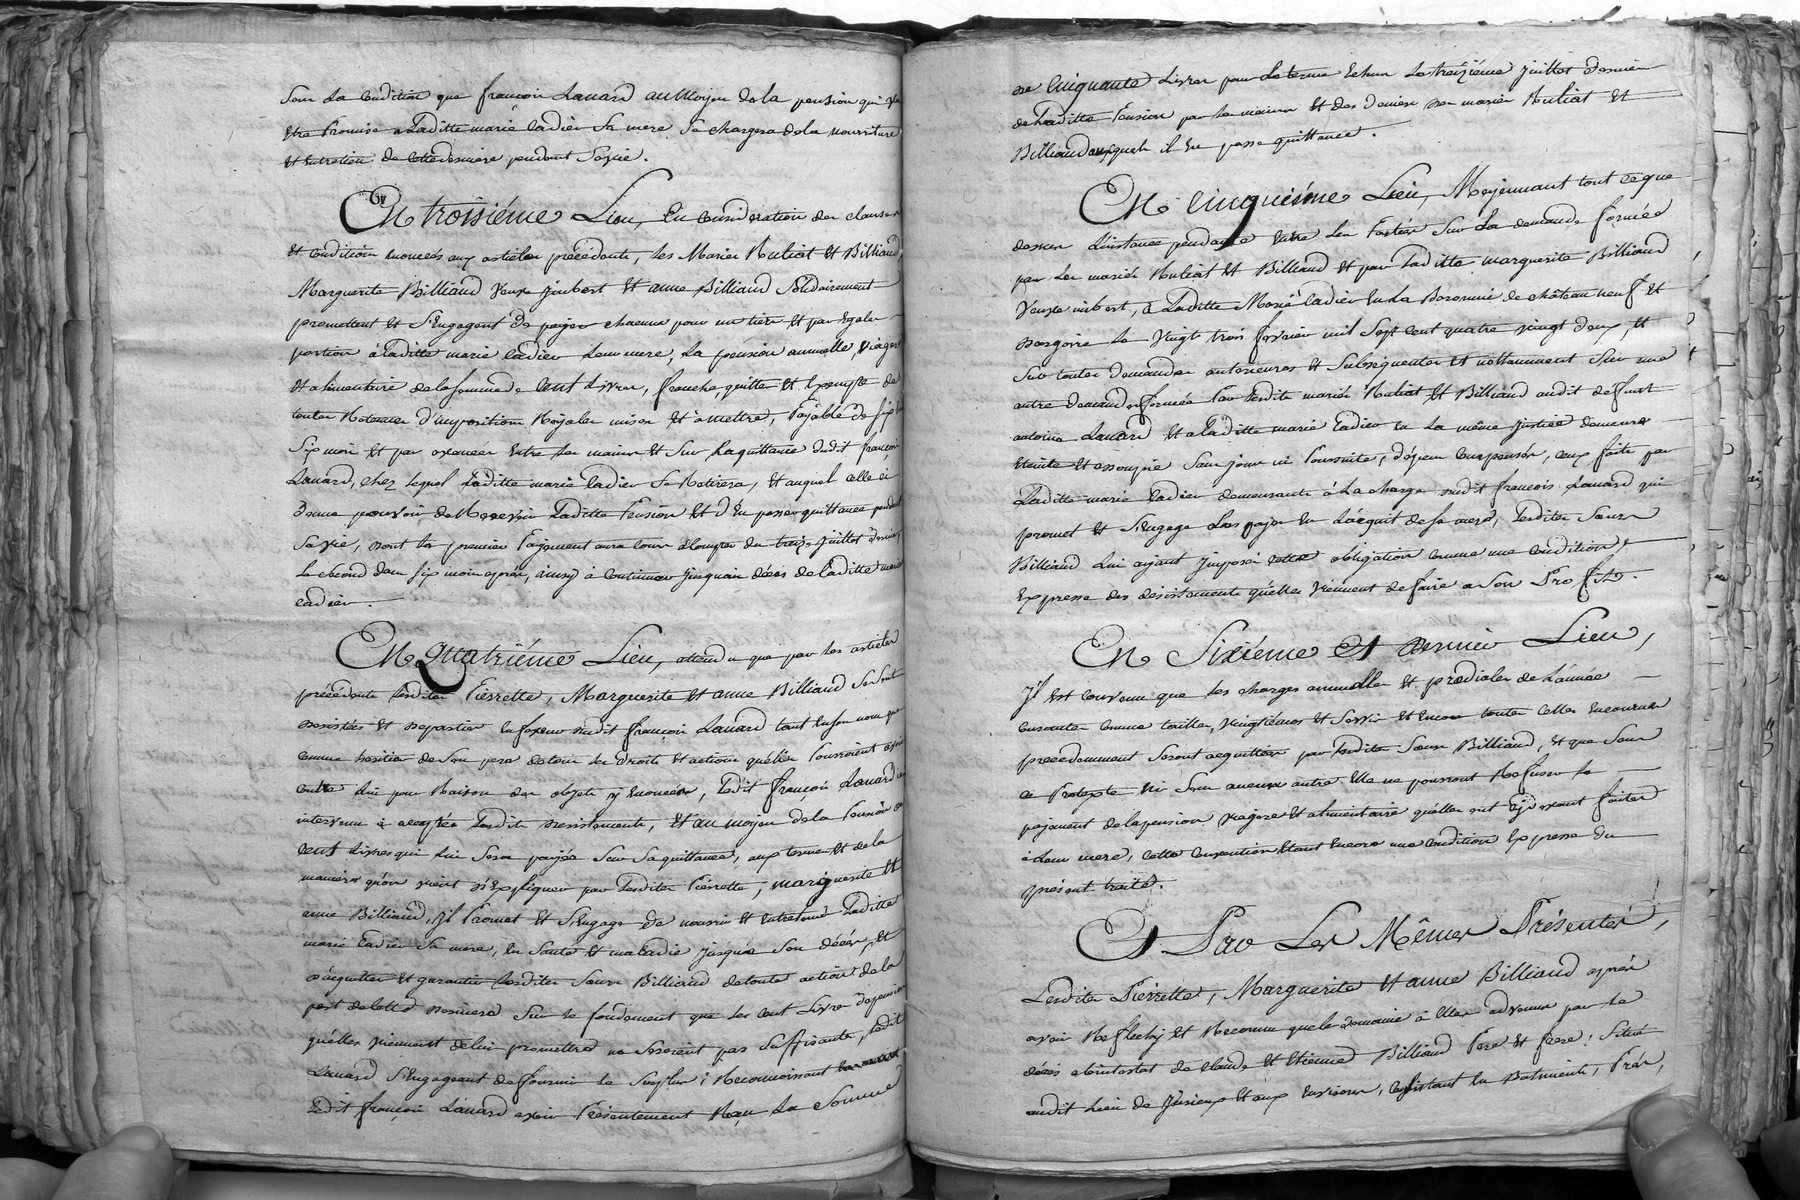 Sous La Condition que françois Lauard au Moyen de la pension qui va
Etre Promise a Laditte marie Cadier Sa mere Se Chargera de la nourriture
Et entretien de cette derniere pendant Sa vie.
En troisiéme Lieu, En Consideration des clauses
Et Condition enoncés aux articles précédents, les Mariés Ruliat Et Billiaud
Marguerite Billiaud veuve Jmbert Et anne Billiaud Solidairement
promettent Et S'Engagent de payer chacune pour un tiers Et par Egales
portion à Laditte marie Cadier Leur mere, La pension annuelle, viagere
Et alimentaire de la Somme de Cent Livres, franche, quitte Et Exempte de
toutes Retenues d'imposition Royales mises Et à mettre, Payable de Six en
Six mois Et par avance Entre les mains Et Sur La quittance dudit françois
Lauard, chez lequel Laditte marie Cadier Se Retirera, Et auquel celle ci
Donne pouvoir de Recevoir Laditte Pension Et d'En passer quittance pendant
Sa vie, dont le premier Payement aura Cour à Compter du treize Juillet dernier,
le Second dans Six mois après, ainsy à Continuer Jusquau décès de Laditte marie
Cadier.
En Quatriéme Lieu, attendu que par les articles
précédents Lesdites Pierrette, Marguerite Et anne Billiaud Se Sont
desistées Et departies En faveur dudit françois Lauard tant En Son nom que
Comme heritier de Son pere de tous les droits Et actions quelles Pouroient avoir
Contre Lui pour Raison des objets y Enoncées, Ledit françois Lauard
intervenu à accepter Lesdits desistements, Et au moyen de la Pension de
Cent Livres qui Lui Sera payée Sous Sa quittance, aux termes Et de la
maniere qu'on vient d'Expliquer par Lesdites Pierrette, marguerite Et
anne Billiaud, Jl Promet Et S'Engage de nourrir Et Entretenir Laditte
marie Cadier Sa mere, En Santé Et maladie Jusquà Son décès, Et
d'acquitter Et garantir Lesdites Sœurs Billiaud de toute action de la
part de Cette derniere Sur le fondement que les Cent Livres de pension
qu'elles viennent de lui promettre ne Seroient pas Suffisante, Ledit
Lauard S'Engageant de fournir le Surplus; Reconnoissant
Ledit françois Lauard avoir Présentement Reçu La Somme
de Cinquante Livres pour Le terme Echus Le treiziéme Juillet dernier
de Laditte Pension par les mains Et des deniers des mariés Ruliat Et
Billiaud auxquels il En passe quittance.
En Cinquiéme Lieu, Moyennant tout ce que
dessus L'instance pendante Entre Les Parties Sur La demande formée
par Les mariés Ruliat Et Billiaud Et par Laditte marguerite Billiaud
veuve imbert, à Laditte Marie Cadier En La Baronnie de château neuf Et
dargoire Le Vingt trois fevrier mil Sept Cent quatre vingt deux, Et
Sur toutes Demandes anterieures Et Subsequentes Et nottamment Sur une
autre demande formée Par Lesdits mariés Ruliat Et Billiaud audit deffunt
antoine Lauard Et a Laditte marie Cadier En La même Justice demeure
Eteinte Et assoupie Sans jour ni Poursuite, dépens Compensés, ceux faits par
Laditte marie Cadier demeurants à La charge dudit françois Lauard qui
promet Et S'Engage Les payer En L'acquit de Sa mere, Lesdites Sœurs
Billiaud Lui ayant Jmposé Cette obligation Comme une Condition
Expresse des desistements qu'elles viennent de faire a Son Profit.
En Sixiéme Et dernier Lieu,
Jl Est Convenu que les charges annuelles Et prédiales de L'année
Courante Comme tailles, vingtiémes Et Servis Et Encor toutes Celles Encourues
precedemment Seront acquittées par Lesdites Sœurs Billiaud, Et que Sous
Ce Pretexte ni Sous aucuns autre Elles ne pourront Refuser le
payement de la pension viagere Et alimentaire qu'elles ont Cy devant faites
à Leur mere, Cette Convention Etant Encore une Condition Expresse du
présent traité.
Et Par Les Mêmes Présentes,
Lesdites Pierrette, Marguerite Et anne Billiaud après
avoir Reflechy Et Reconnu que le domaine à Elles advenu par le
décès abintestat de Claude Et Etienne Billiaud Pere Et frere, Situé
audit Lieu de Jusieux Et aux Environs, Consistant En Batiments, Prés,